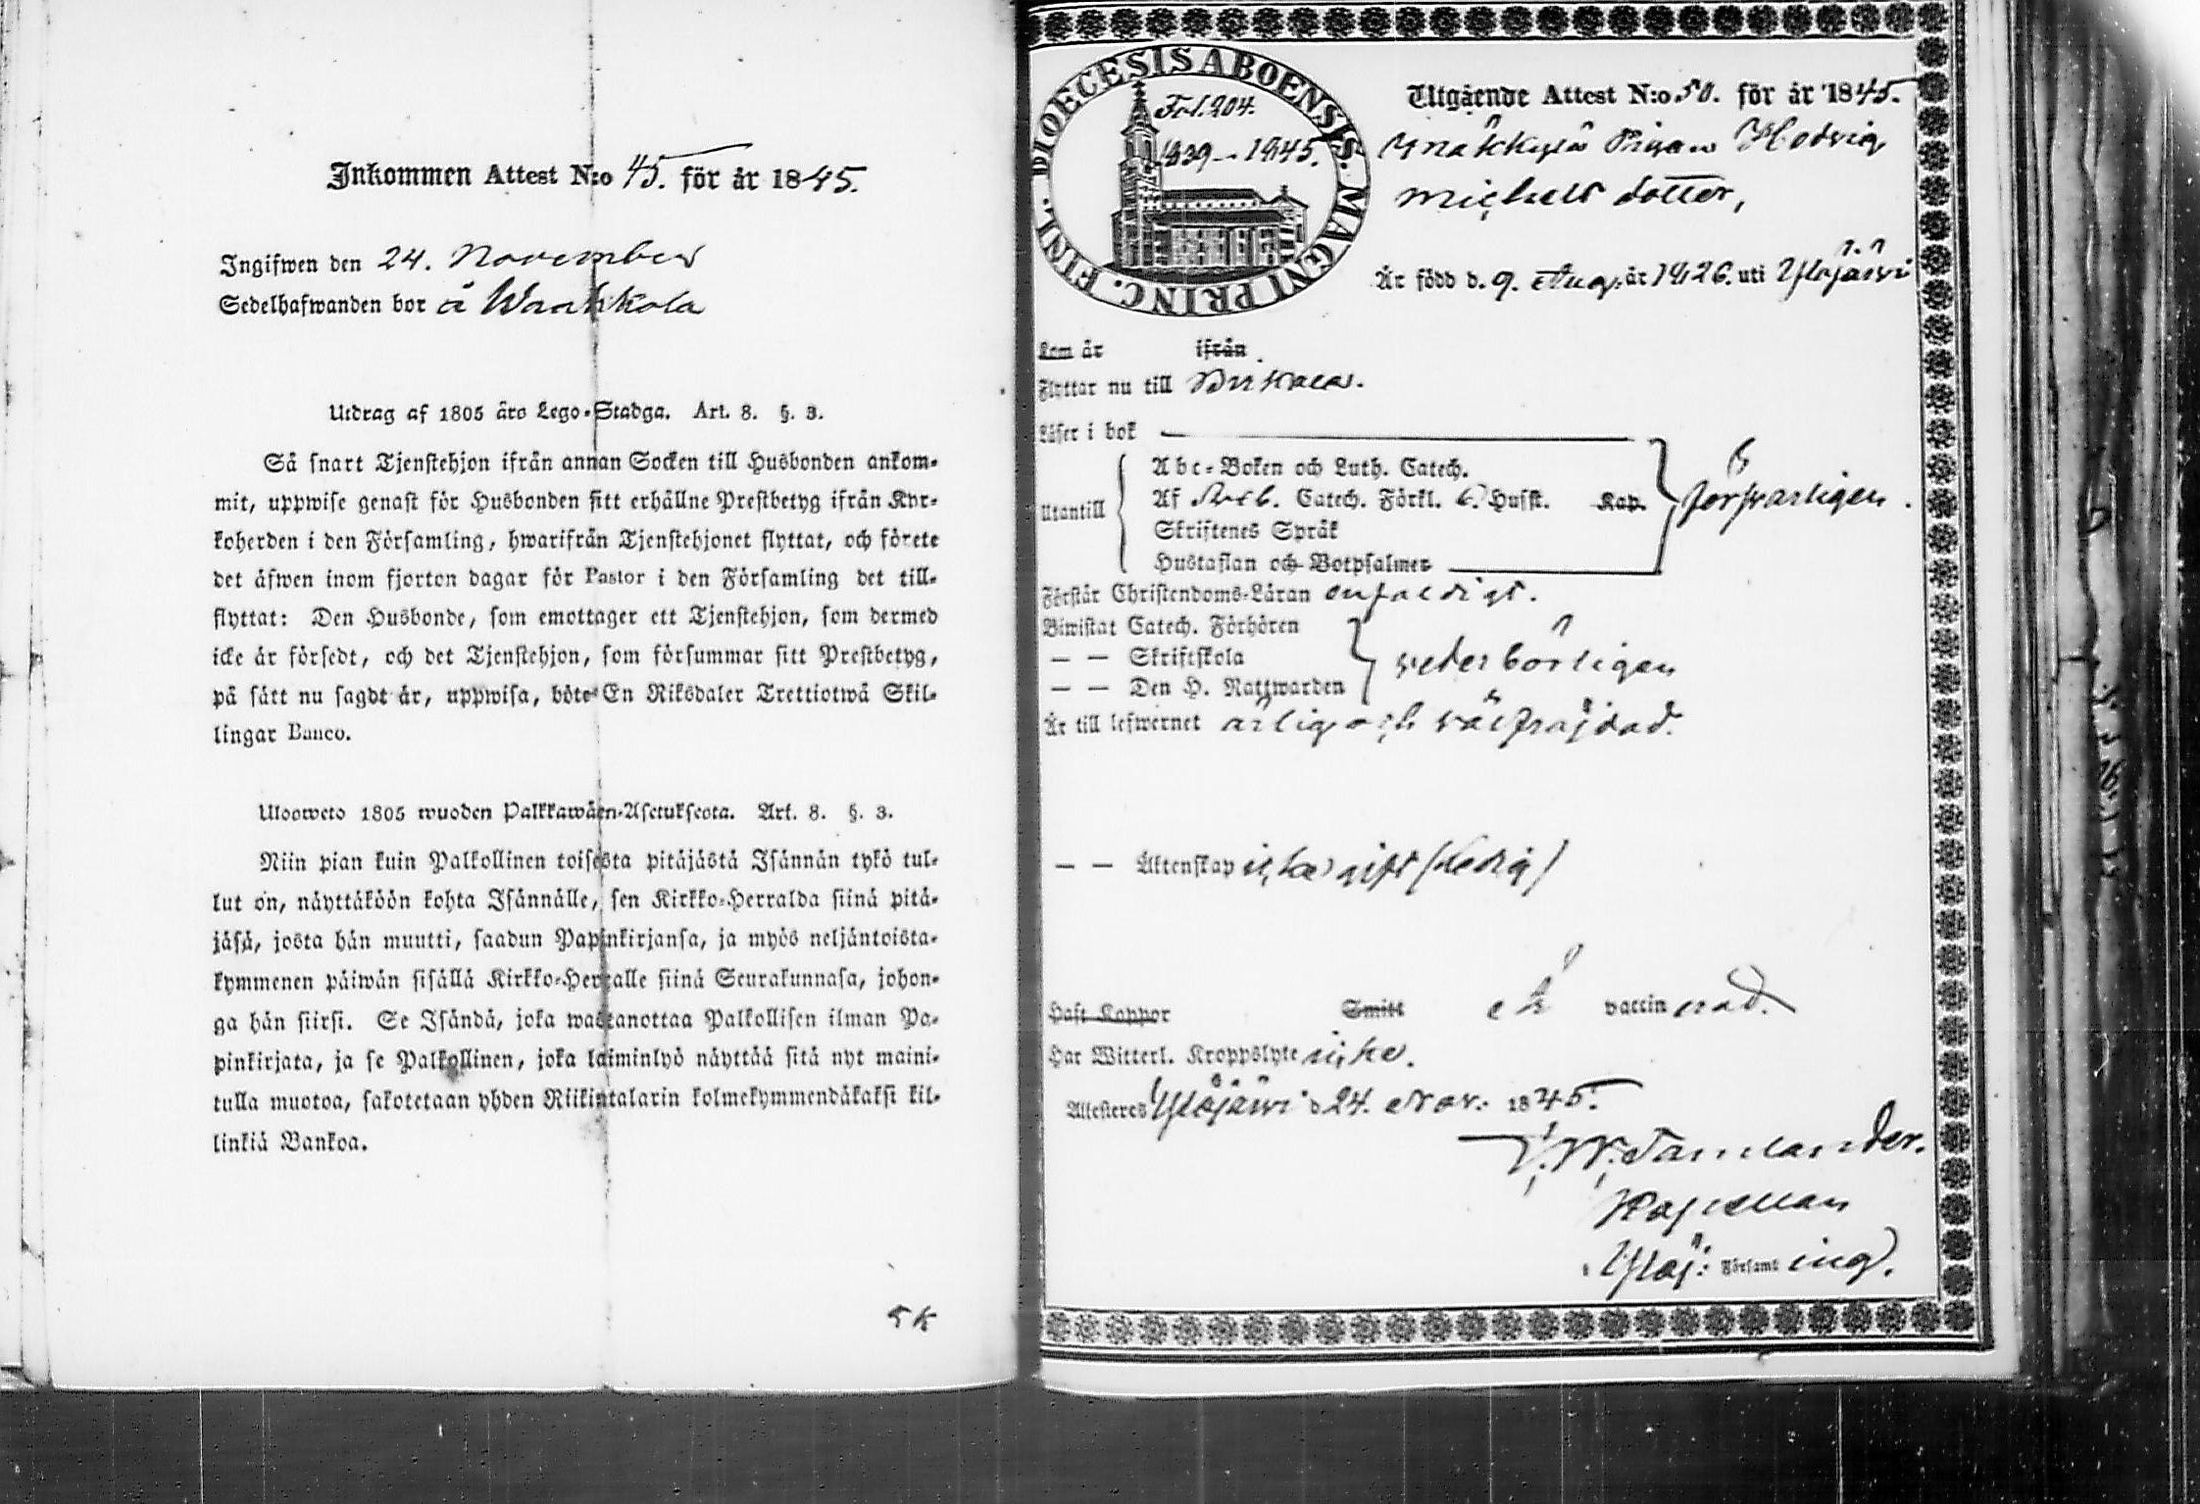 Inkommen Attest N:o 45. för år 1845.
Ingifwen den 24. November
Sedelhafwanden bor å Waahkola
Utdrag af 1805 års Lego-Stadga. Art. 8. §. 3.
Så snart Tjenstehjon ifrån annan Socken till Husbonden ankom-
mit, uppwise genast för Husbonden sitt erhållne Prestbetyg ifrån Kyr-
koherden i den Församling, hwarifrån Tjenstehjonet flyttat, och förete
det äfwen inom fjorton dagar för Pastor i den Församling det till-
flyttat: Den Husbonde, som emottager ett Tjenstehjon, som dermed
icke är försedt, och det Tjenstehjon, som försummar sitt Prestbetyg,
på sätt nu sagdt är, uppwisa, böte En Riksdaler Trettiotwå Skil-
lingar Banco.
Ulosweto 1805 wuoden Palkkawäen-Asetuksesta. Art. 8. §. 3.
Niin pian kuin Palkollinen toisesta pitäjästä Isännän tykö tul-
lut on, näyttäköön kohta Isännälle, sen Kirkko-Herralda siinä pitä-
jäsä, josta hän muutti, saadun Papinkirjansa, ja myös neljäntoista-
kymmenen päiwän sisällä Kirkko-Herralle siinä Seurakunnasa, johon-
ga hän siirsi. Se Isändä, joka wastanottaa Palkollisen ilman Pa-
pinkirjata, ja se Palkollinen, joka laiminlyö näyttää sitä nyt maini-
tulla muotoa, sakotetaan yhden Riikintalarin kolmekymmendäkaksi kil-
linkiä Bankoa.
5 k
DIOECESIS ABOENSIS. MAGNI PRINC. FINL.
Fol. 204.
1839–1845.
Utgående Attest N:o 50. för år 1845.
Mäkkylä Pigan Hedvig
Michels dotter,
Är född d. 9. Aug. år 1826. uti Ylöjärwi
Kom år ifrån
Flyttar nu till Birkala.
Läser i bok
Utantill
Abc-Boken och Luth. Catech.
Af Sveb. Catech. Förkl. 6. Husst. Kap.
Skriftenes Språk
Hustaflan och Botpsalmer
försvarligen.
Förstår Christendoms-Läran enfaldigt.
Biwistat Catech. Förhören
— — Skriftskola
— — Den H. Nattwarden
vederbörligen
Är till lefwernet ärlig och välfräjdad.
— — Äktenskap icke gift (ledig)
Haft Koppor Smitt är vaccinerad.
Har Witterl. Kroppslyte icke.
Attesteres Ylöjärwi d. 24. Nov. 1845.
W. Tamlander.
Kapellan
i Ylöj: Församling.